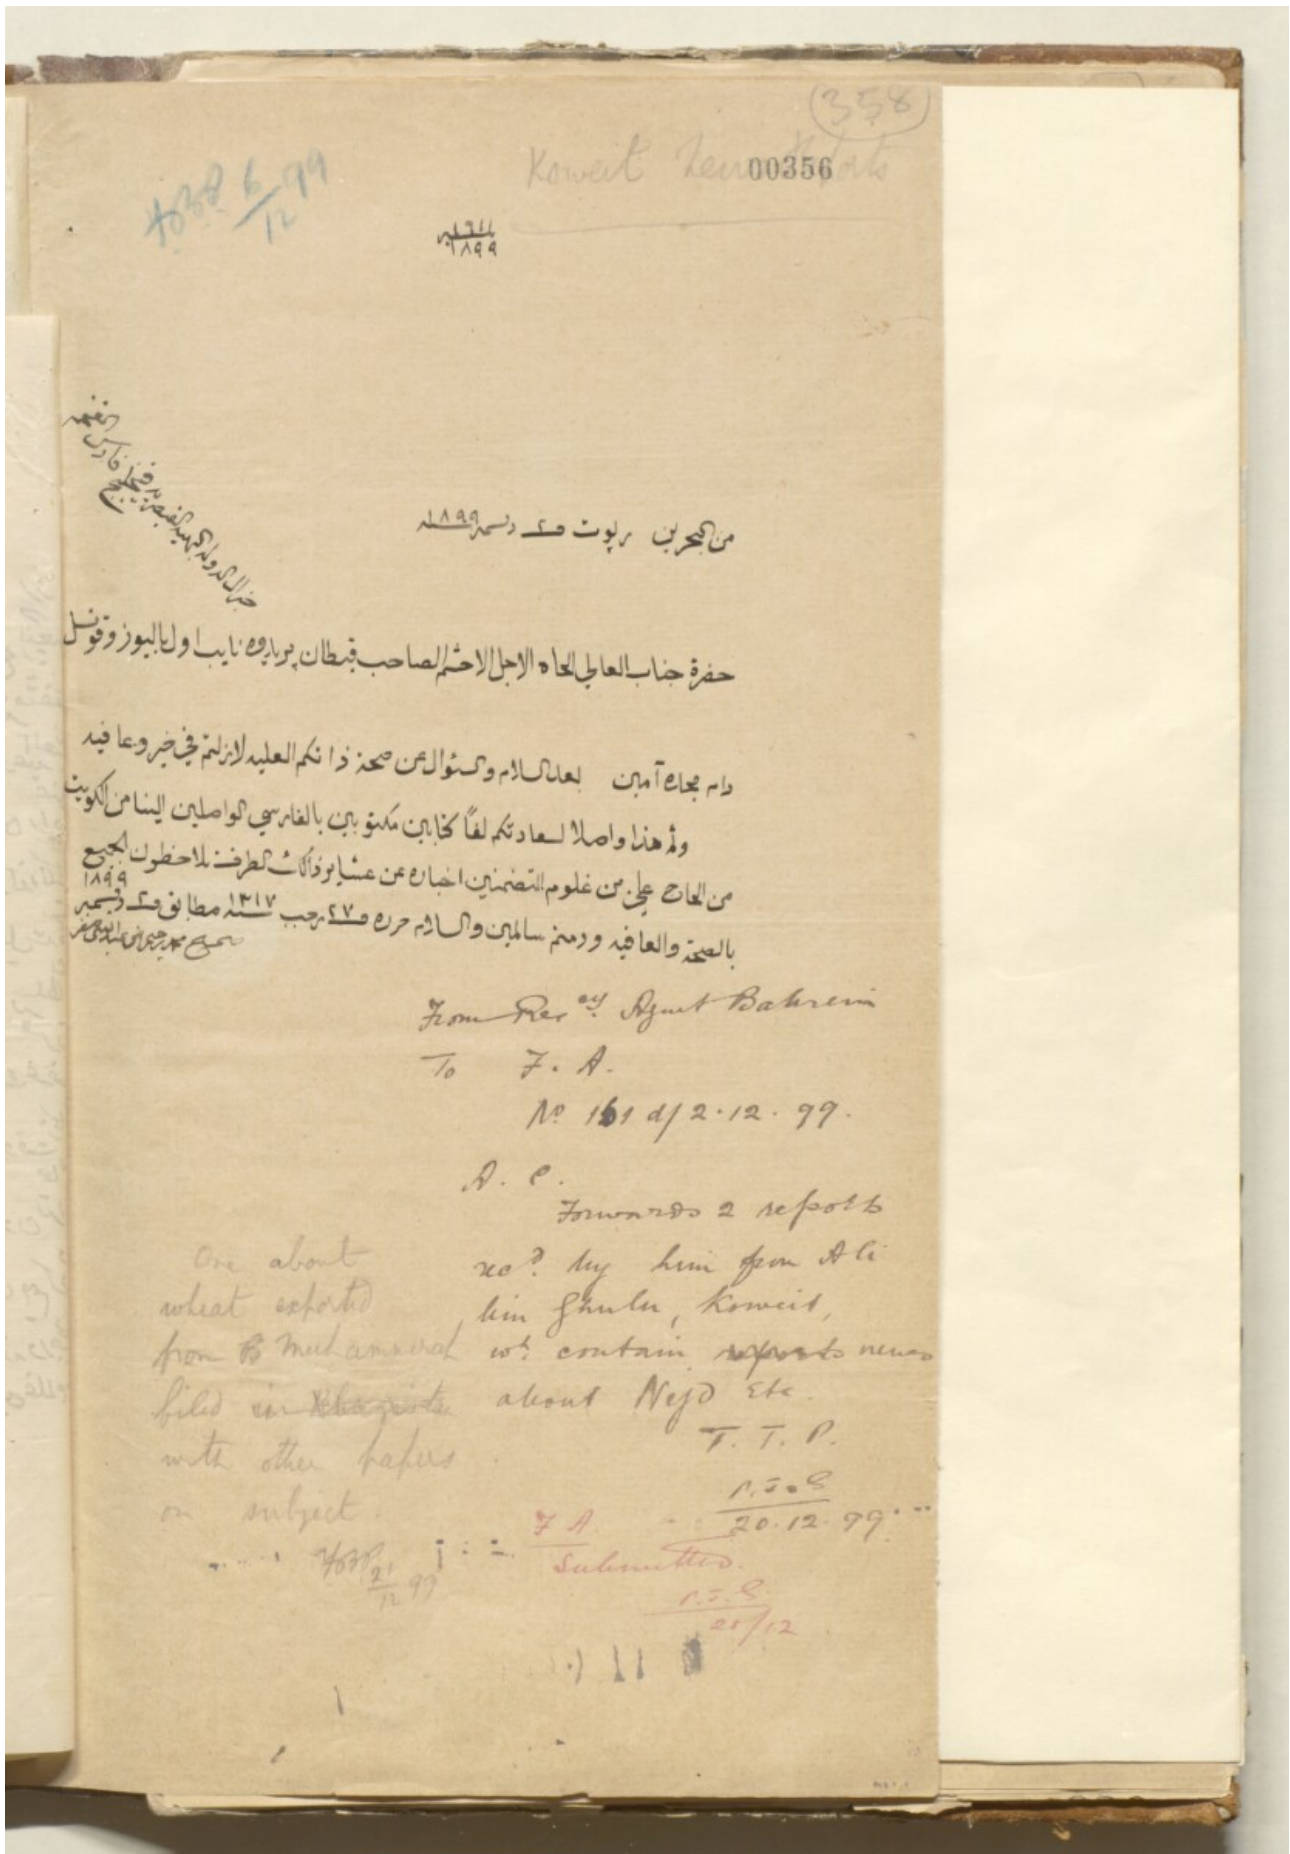 358
Koweit News
00356
6/12 99
١٨٩٩
من البحرين رپوت ٢ دسمبر ١٨٩٩
حضرة جناب العالي الجاه الاجل الاحشم الصاحب قبطان پريدوه نايب اول باليوز وقونسل
جنرال الدولة البهية القيصرية في خليج فارس
دام مجده آمين بعد السلام والسئوال عن صحة ذاتكم العليه لازلتم في خير وعافيه
ولهذا واصلا لسعادتكم لفًا كتابين مكتوبين بالفارسي الواصلين الينا من الكويت
من الحاج علي بن غلوم المتضمنين اخباره عن عشاير ذاك الطرف تلاحظون الجميع
بالصحة والعافيه ودمتم سالمين والسلام حرره ٢٧ رجب ١٣١٧ مطابق ٢ دسمبر ١٨٩٩
From Res cy. Agent Bahrein
To F. A.
No 161 d/ 2.12.99.
A. C.
Forwards 2 reports
recd. by him from Ali
bin Ghulu, Koweit,
wh. contain reports news
about Nejd Etc.
T. T. P.
20.12.99
One about
wheat exported
from B Muhammerah
filed in
with other papers
on subject.
21/12 99
F A
Submitted.
20/12